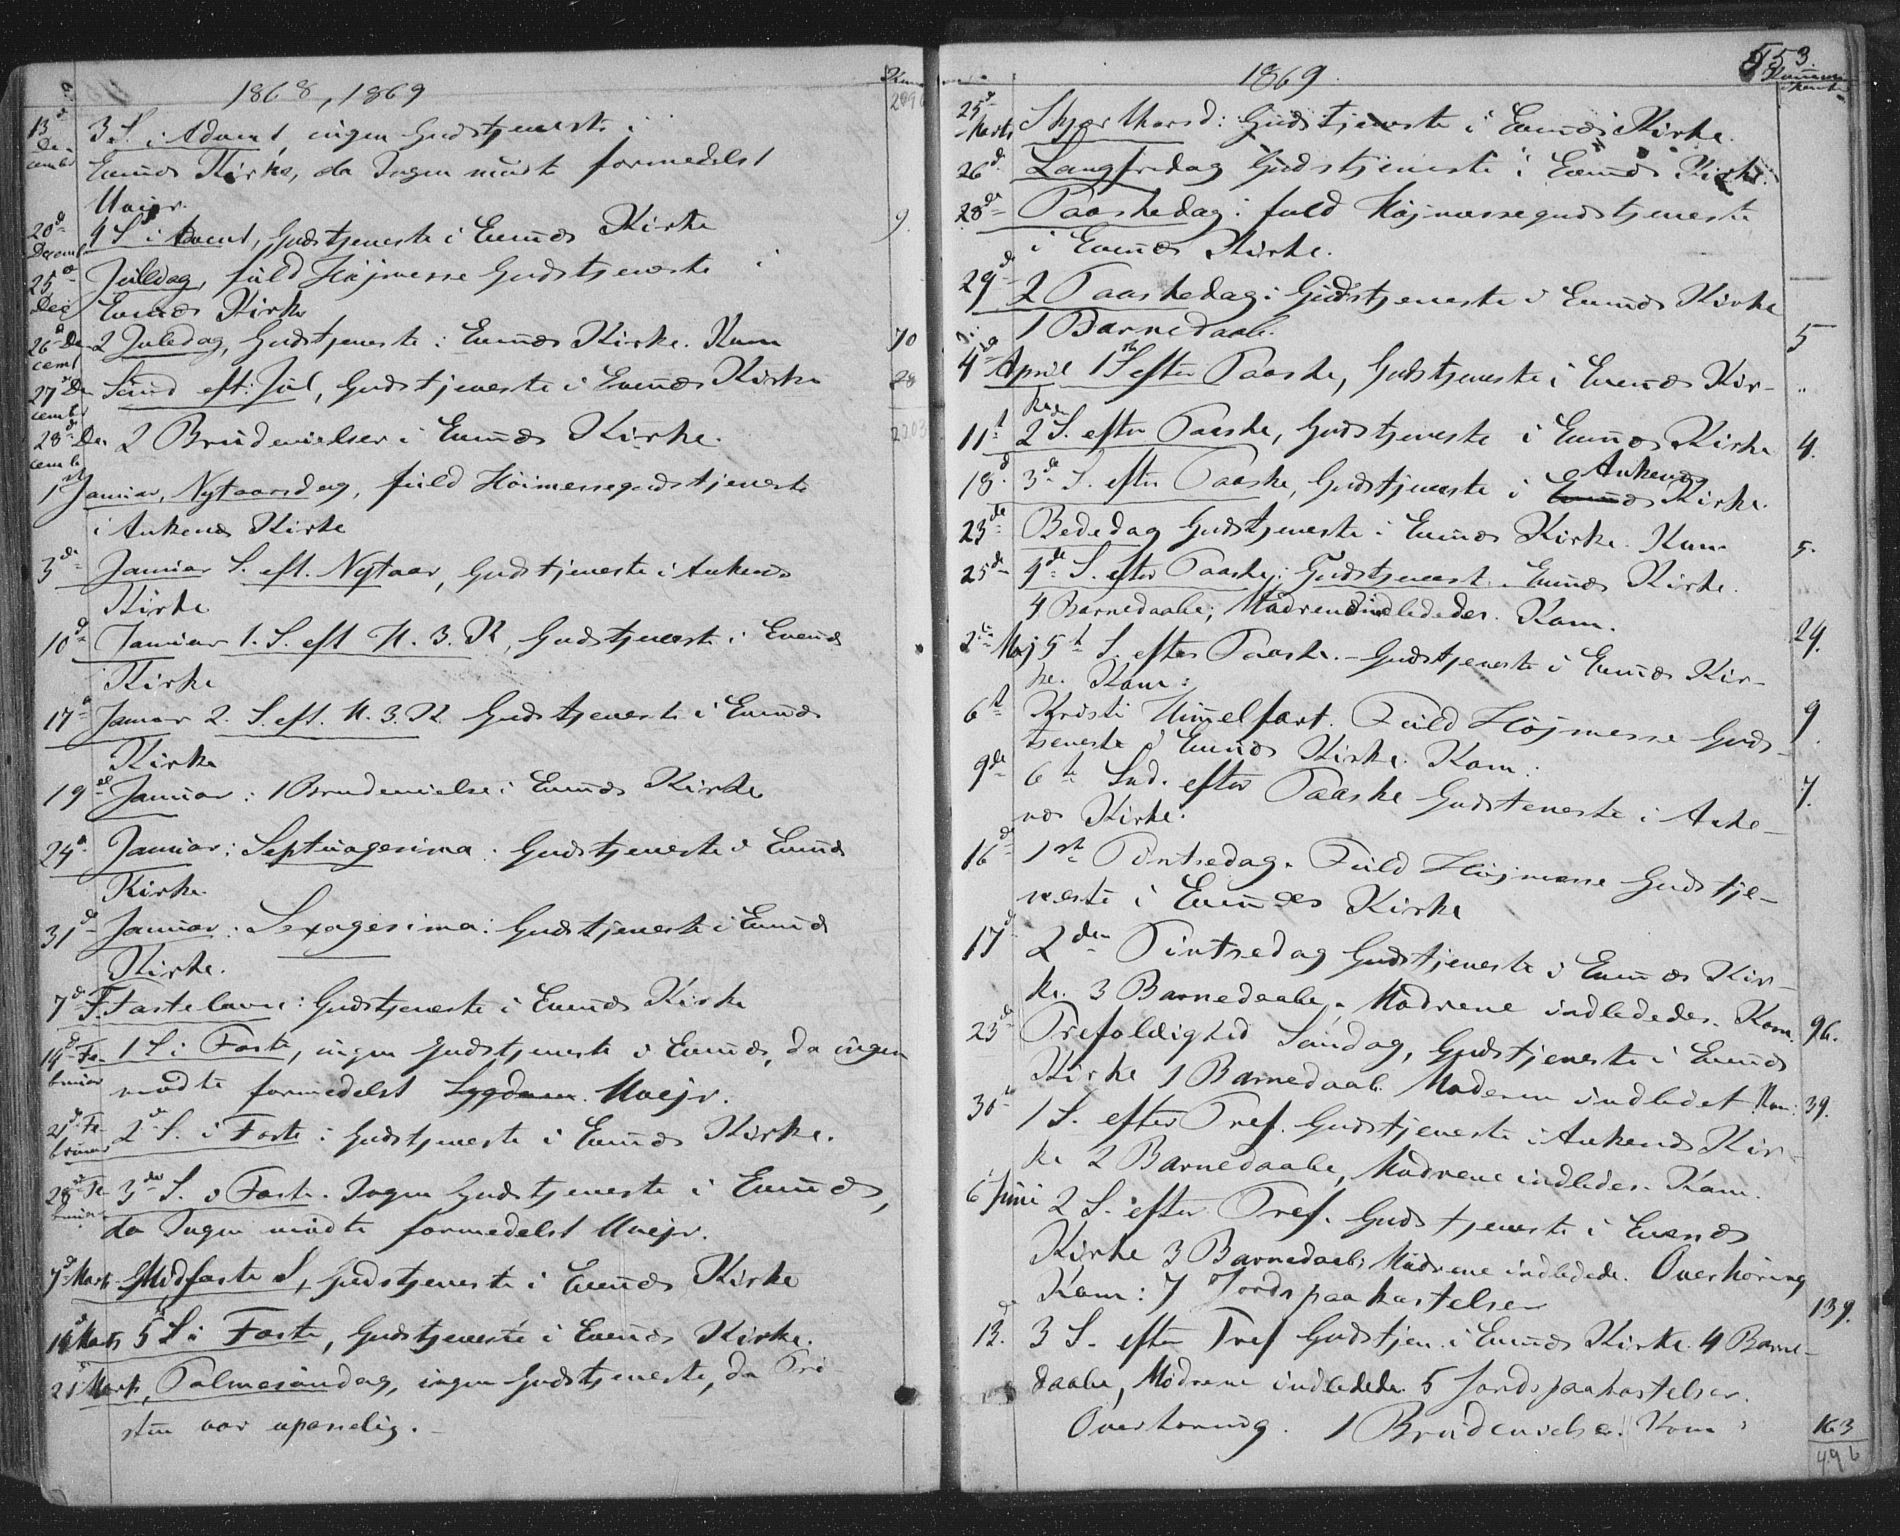 1868, 1869
2896
13de De- 3 S. i Advent, ingen Gudstjeneste i
cembr Evenæs Kirke, da Ingen mødte formedelst
Uveir.
20de Decemb. 4 S. i Advent, Gudstjeneste i Evenæs Kirke 9.
25de Juledag, fuld Højmesse Gudstjeneste i
Dec Evenæs Kirke
26de De- 2 Juledag, Gudstjeneste i Evenæs Kirke. Kom 70
cemb
27de De- Sønd eft: Jul, Gudstjeneste i Evenæs Kirke 28
cembr
28de De- 2 Brudevielser i Evenæs Kirke.
cemb
1ste Januar, Nytaarsdag, fuld Höimessegudstjeneste
i Ankenes Kirke
3de Januar S. eft. Nytaar, Gudstjeneste i Ankenes
Kirke
10de Januar 1. S. eft H. 3. K, Gudstjeneste i Evenæs
Kirke
17de Januar 2. S. eft. H. 3. K. Gudstjeneste i Evenæs
Kirke
19de Januar: 1 Brudevielse i Evenæs Kirke
24de Januar: Septuagesima: Gudstjeneste i Evenæs
Kirke.
31de Januar: Sexagesima: Gudstjeneste i Evenæs
Kirke.
7de F. Fastelavn: Gudstjeneste i Evenæs Kirke
14de Fe- 1 S i Faste, ingen Gudstjeneste i Evenæs, da ingen
bruar mødte formedelst Sygdom Uvejr.
21de Fe- 2de S. i Faste: Gudstjeneste i Evenæs Kirke.
bruar
28de Fe- 3die S. i Faste. Ingen Gudstjeneste i Evenæs,
bruar da Ingen mødte formedelst Uvejr.
7de Marts Midfaste S, Gudstjeneste i Evenæs Kirke
14 Marts 5 S i Faste, Gudstjeneste i Evenæs Kirke.
21 Marts, Palmesøndag, ingen Gudstjeneste, da Præ
sten var upasselig.
1869.
553.
25de Marts Skjærthorsd: Gudstjeneste i Evenæs Kirke.
26de Langfredag Gudstjeneste i Evenæs Kirke.
28de Paaskedag: fuld Højmessegudstjeneste
i Evenæs Kirke.
29de 2 Paaskedag: Gudstjeneste i Evenæs Kirke
1 Barnedaab. 5
4de April 1ste S efter Paaske, Gudstjeneste i Evenæs Kir- "
ke
11te 2 S. efter Paaske, Gudstjeneste i Evenæs Kirke 4.
Ankenes
18de 3de S. efter Paaske, Gudstjeneste i Evenæs Kirke.
23de Bededag Gudstjeneste i Evenæs Kirke. Kom 5.
25de 4de S. efter Paaske: Gudstjeneste i Evenæs Kirke.
4 Barnedaabe; Mødrene indlededes. Kom. 24.
2de Maj 5te S. efter Paaske. – Gudstjeneste i Evenæs Kir-
ke. Kom:
6te Kristi Himmelfart. Fuld Højmesse Guds- 9
tjeneste i Evenæs Kirke. Kom:
9de 6te Snd. efter Paaske Gudsteneste i Anke- 7.
næs Kirke.
16de 1ste Pintsedag. Fuld Højmesse Gudstje-
neste i Evenæs Kirke
17de 2den Pintsedag Gudstjeneste i Evenæs Kir-
ke. 3 Barnedaabe, Mødrene indlededes. Kom. 96.
23de Trefoldighed Søndag, Gudstjeneste i Evenæs
Kirke 1 Barnedaab. Moderen indledet. Kom: 39.
30te 1 S. efter Tref. Gudstjeneste i Ankenes Kir-
ke 2 Barnedaabe, Mødrene indledes. Kom.
6 Juni 2 S. efter Tref. Gudstjeneste i Evenæs
Kirke 3 Barnedaabe, Mødrene indledede. Overhøring
Kom: 7 Jordspaakastelser 139.
13. 3 S. efter Tref Gudstjen. i Evenæs Kirke. 4 Barne-
daabe, Mødrene indledede. 5 Jordspaakastelser.
Overhøring. 1 Brudevielse. Kom: 163
496